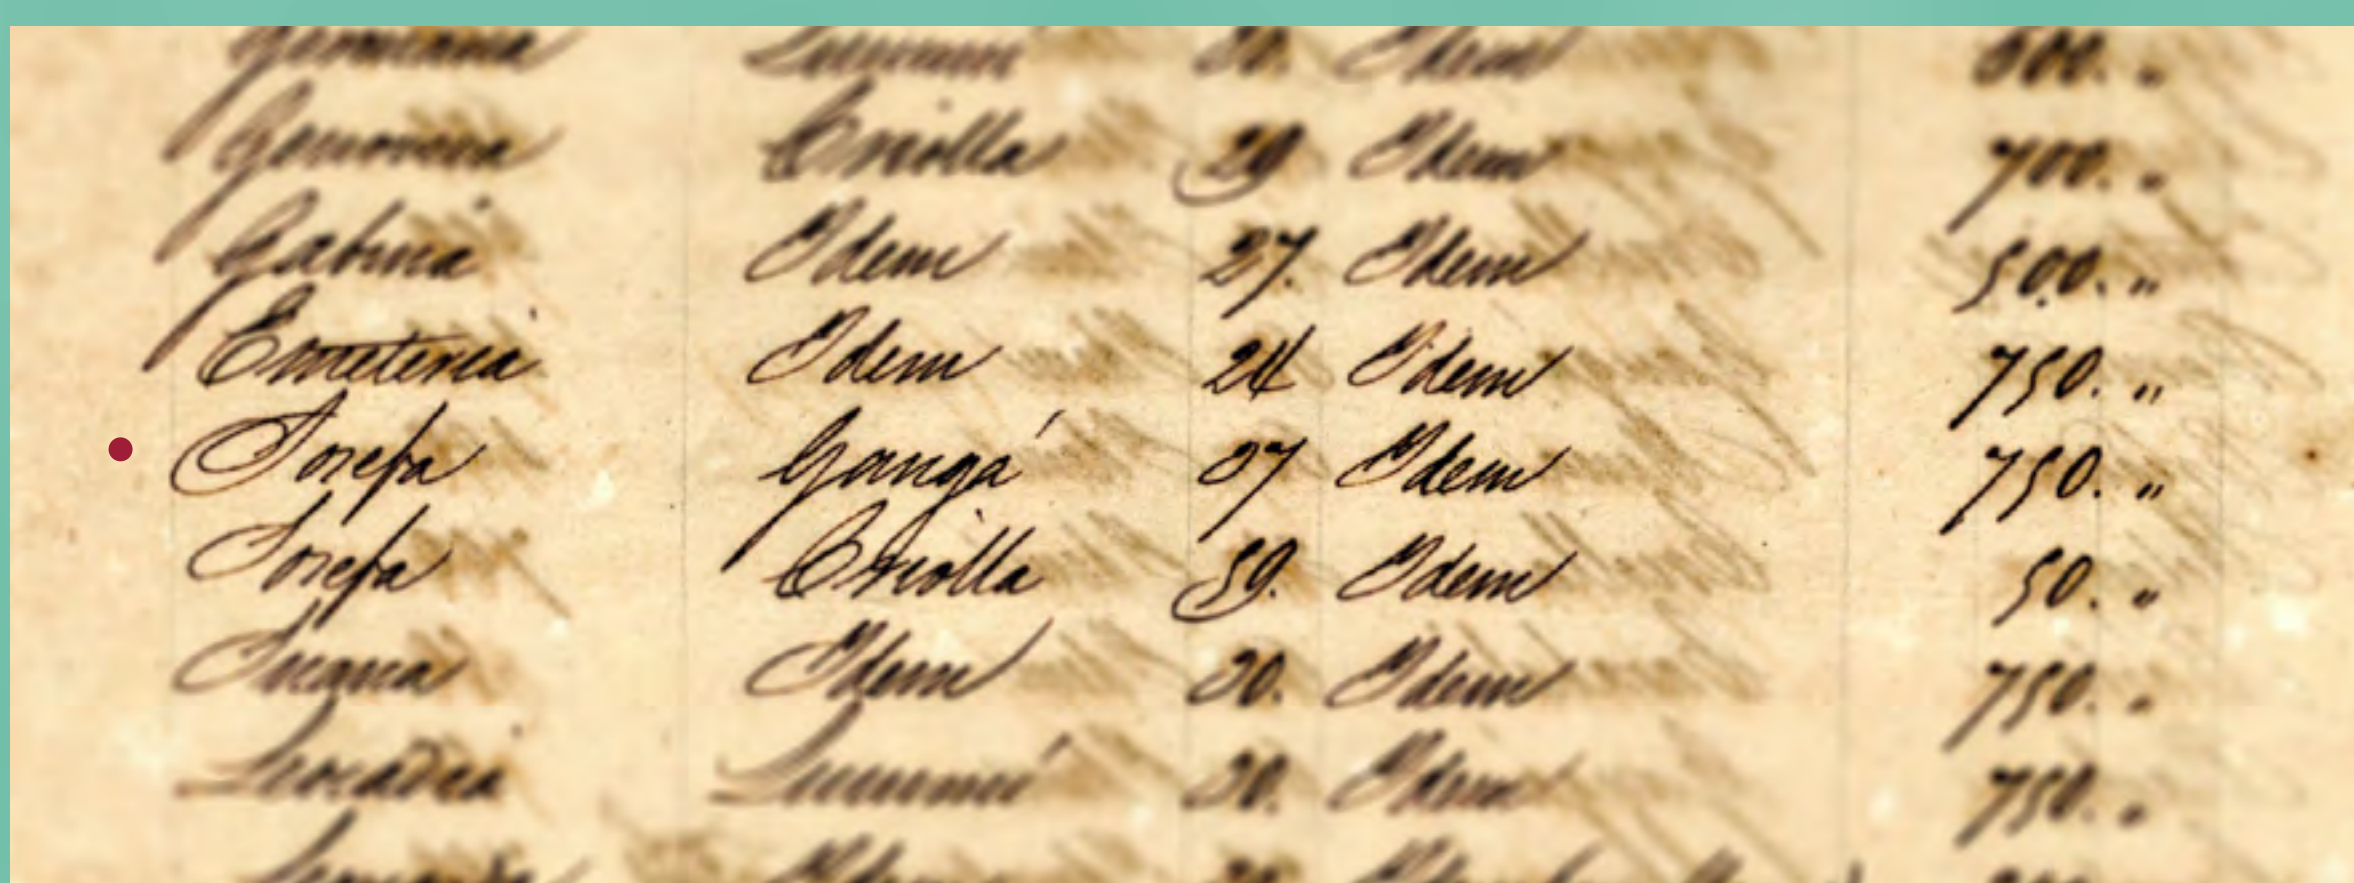 Germana Lucumí 30. Idem 600. "
Genoveva Criolla 29 Idem 700. "
Gabina Idem 27. Idem 500. "
Emeteria Idem 24 Idem 750. "
Josefa Gangá 37 Idem 750. "
Josefa Criolla 59. Idem 50. "
Juana Idem 30. Idem 750. "
Leocadia Lucumí 30. Idem 750. "